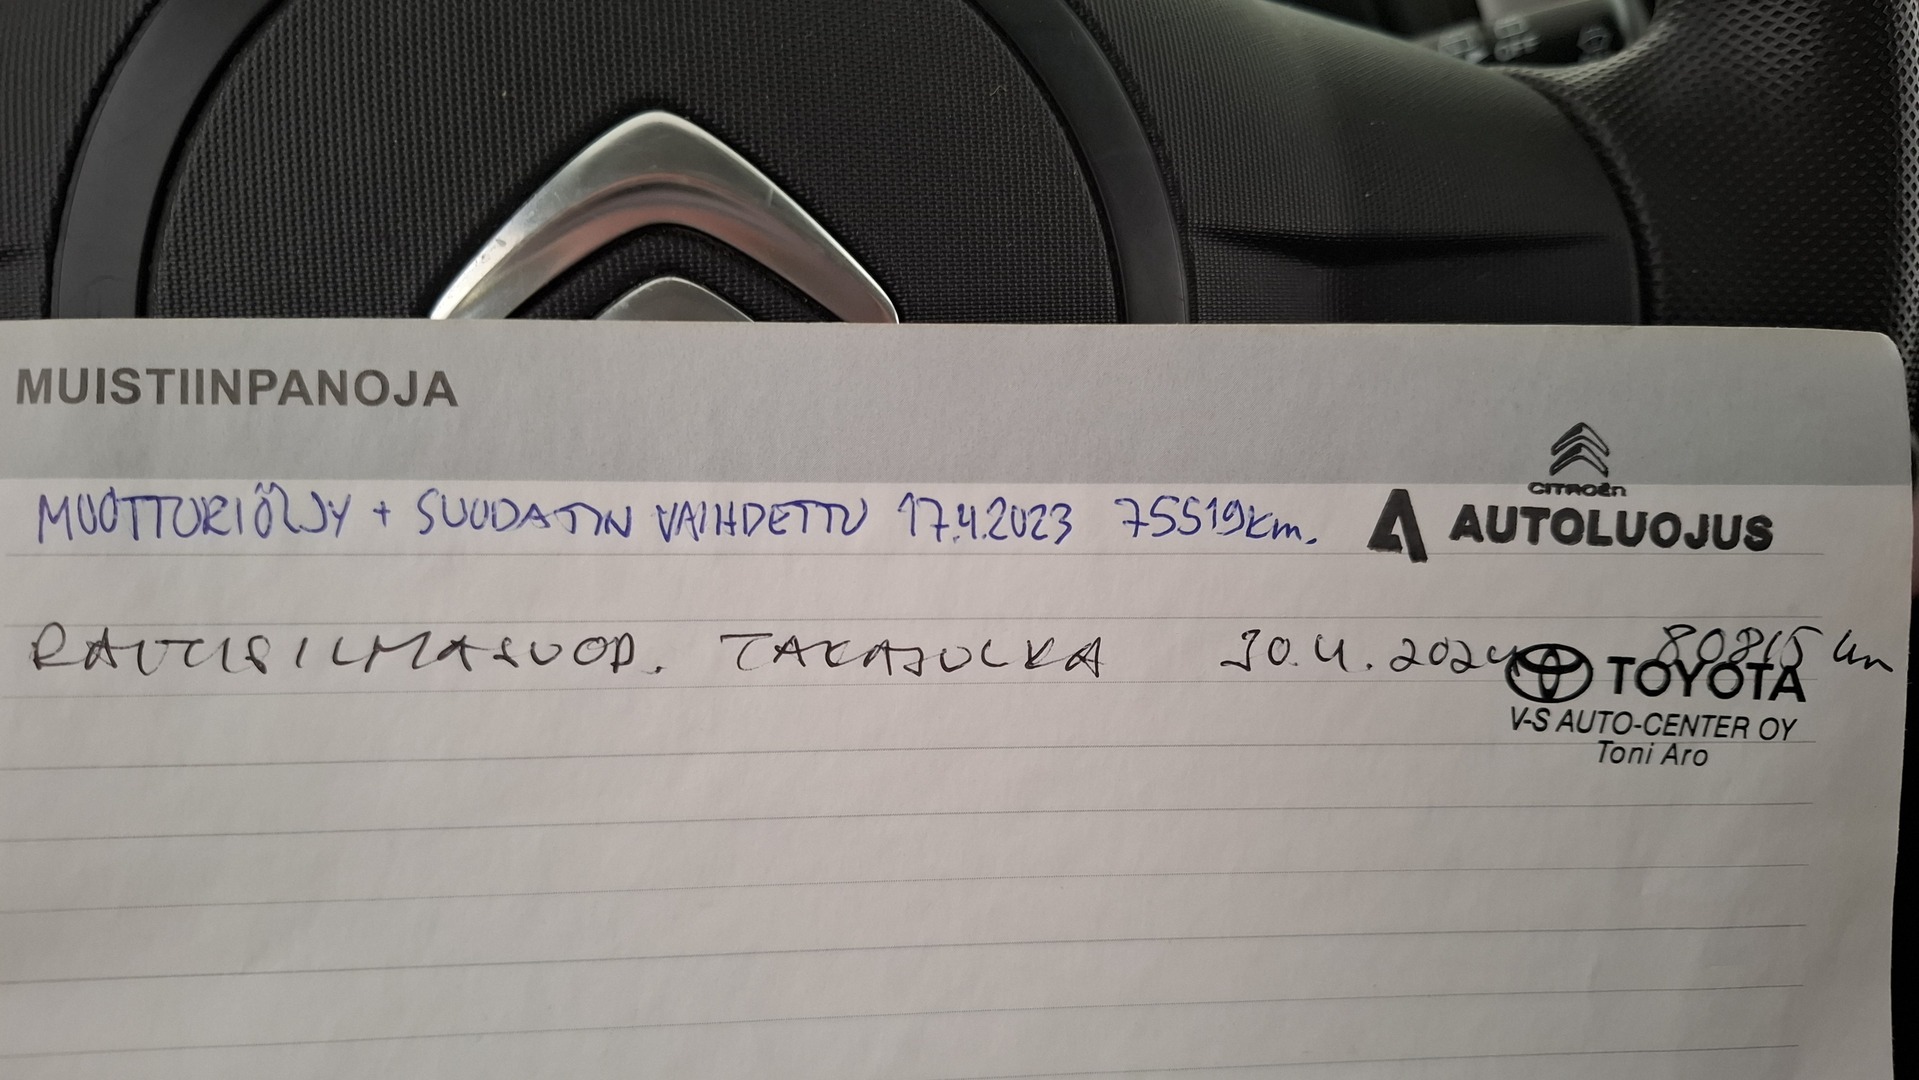 MUISTIINPANOJA
CITROËN
MUOTTORIÖLJY + SUODATIN VAIHDETTU 17.4.2023 75519km. AUTOLUOJUS
RAITISILMASUOD. TAKAJULKA 30.4.2024 80815 km
TOYOTA
V-S AUTO-CENTER OY
Toni Aro